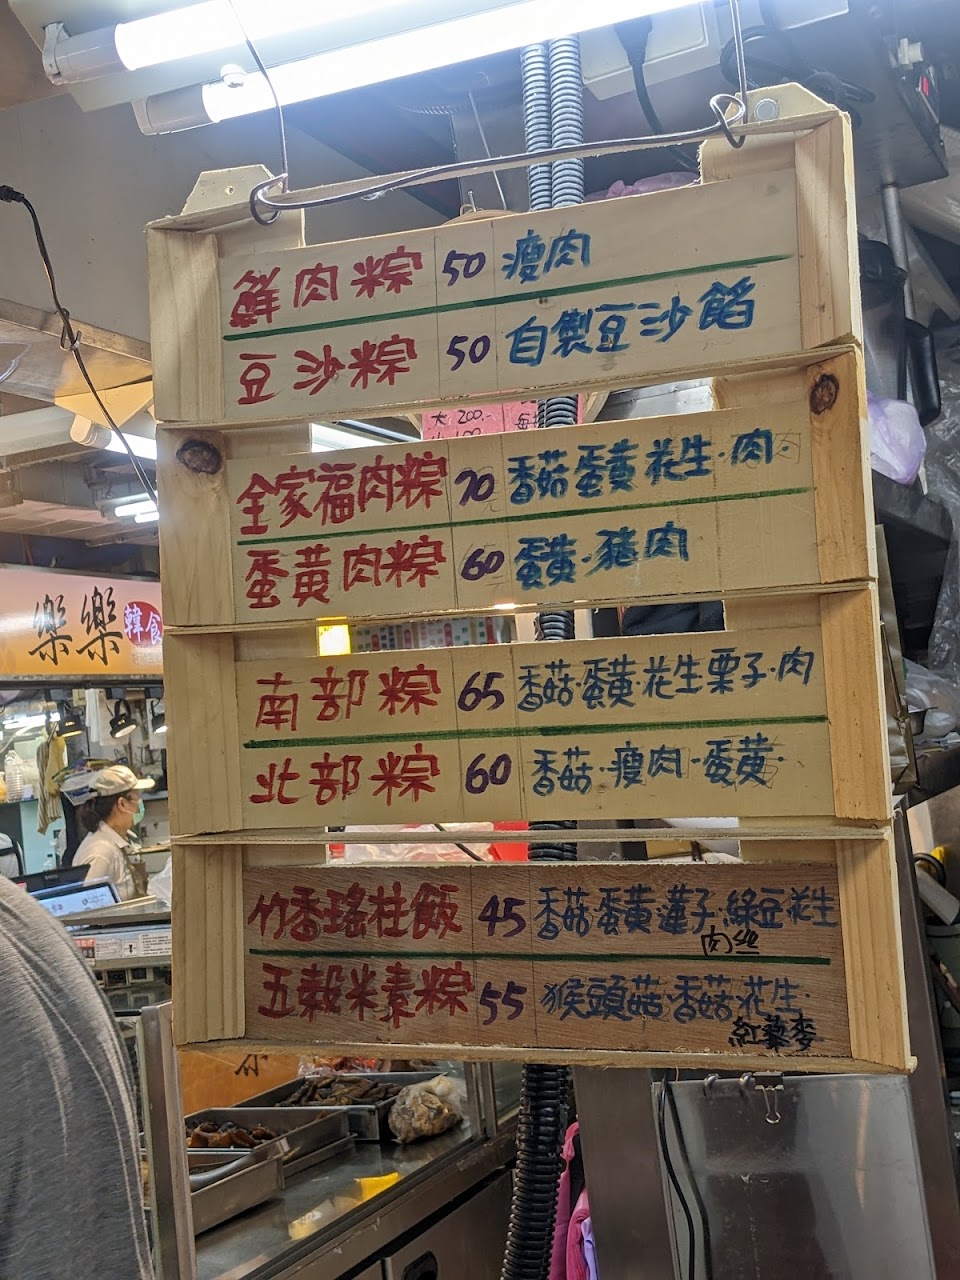 鮮肉粽 50 瘦肉
豆沙粽 50 自製豆沙餡
大 200.-
全家福肉粽 70 香菇蛋黃花生·肉·
蛋黃肉粽 60 蛋黃·豬肉
南部粽 65 香菇·蛋黃·花生栗子·肉
北部粽 60 香菇·瘦肉·蛋黃·
竹香瑤柱飯 45 香菇·蛋黃·蓮子·綠豆花生
肉丝
五榖米素粽 55 猴頭菇·香菇·花生·
紅藜麥
樂樂 韓食